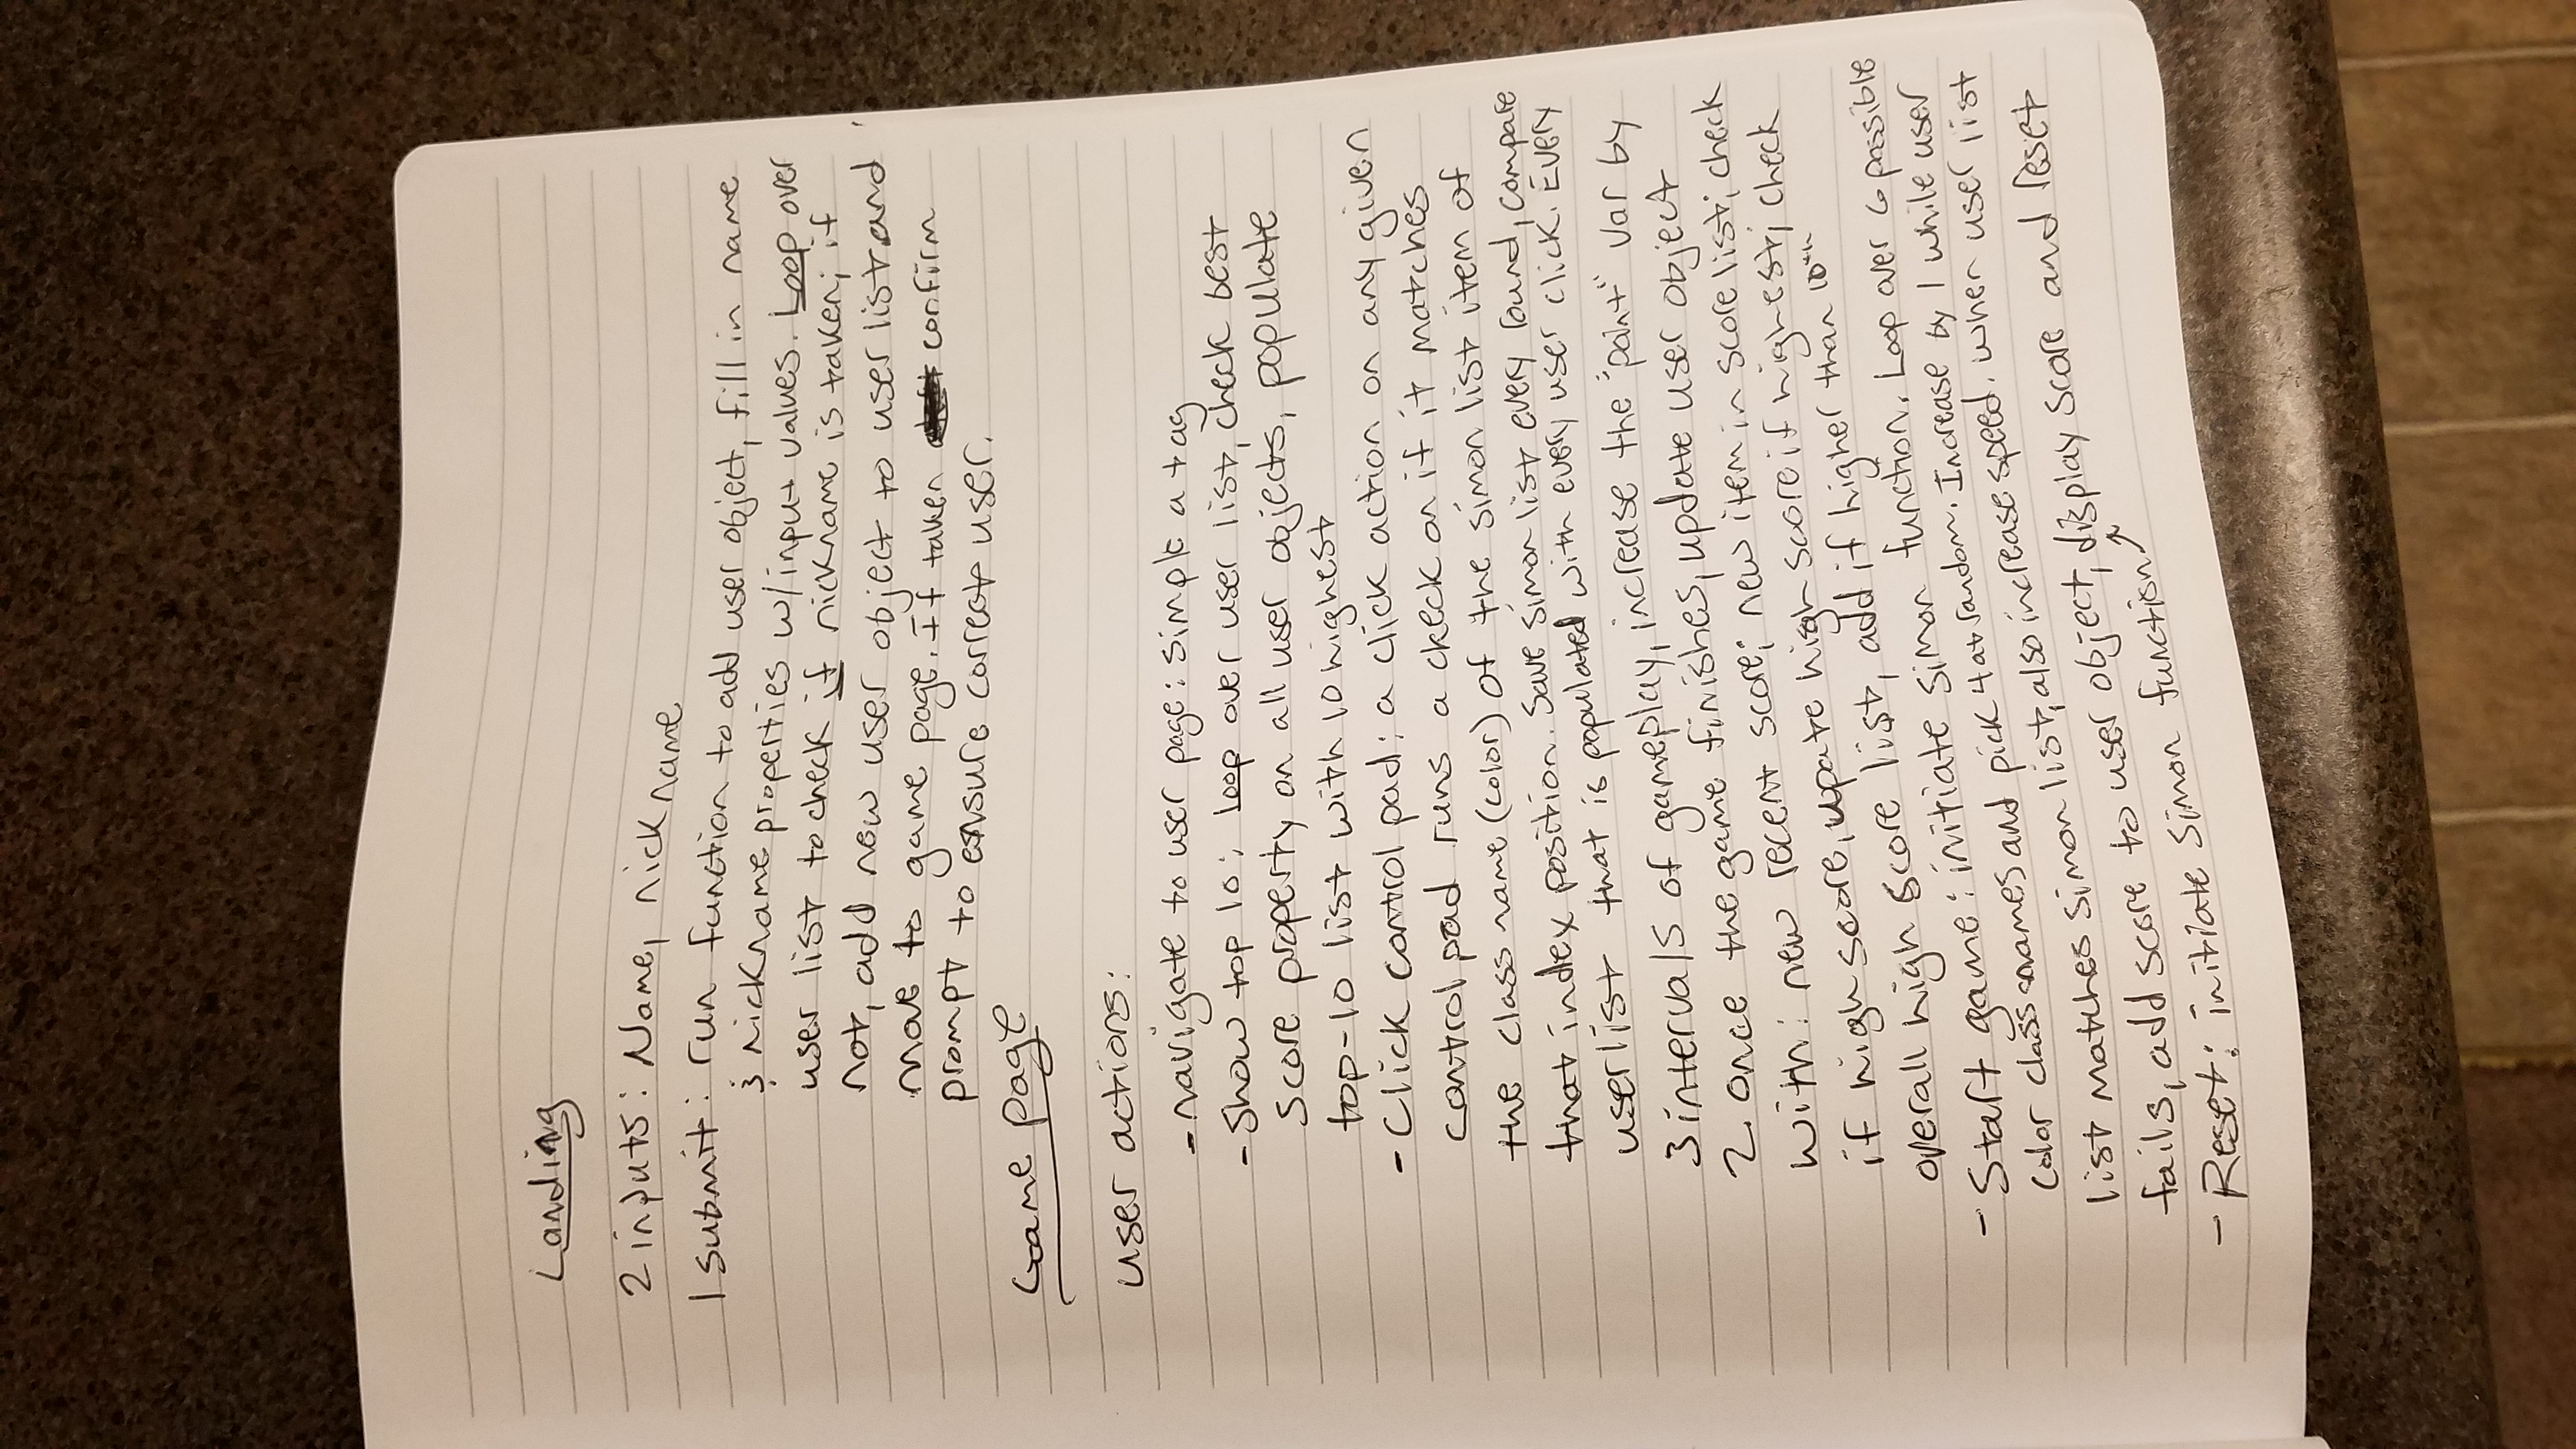 Landing
2 inputs: Name, nickname
1 submit: run function to add user object, fill in name
& nickname properties w/input values. Loop over
user list to check if nickname is taken; if
not, add new user object to user list and
move to game page. If taken confirm
prompt to ensure correct user.
Game page
user actions:
- navigate to user page: simple a tag
- Show top 10: Loop over user list, check best
score property on all user objects, populate
top-10 list with 10 highest
- Click control pad: a click action on any given
control pad runs a check on if it matches
the class name (color) of the simon list item of
that index position. Save simon list every round, compare
userlist that is populated with every user click. Every
3 intervals of gameplay, increase the "point" var by
2. Once the game finishes, update user object
with: new recent score; new item in score list; check
if high score, upate high score if highest; check
overall high score list, add if higher than 10th
- Start game: initiate simon function. Loop over 6 possible
color class names and pick 4 at random. Increase by 1 while user
list matches simon list, also increase speed. When user list
fails, add score to user object, display score and reset
- Reset: initiate simon function ↗